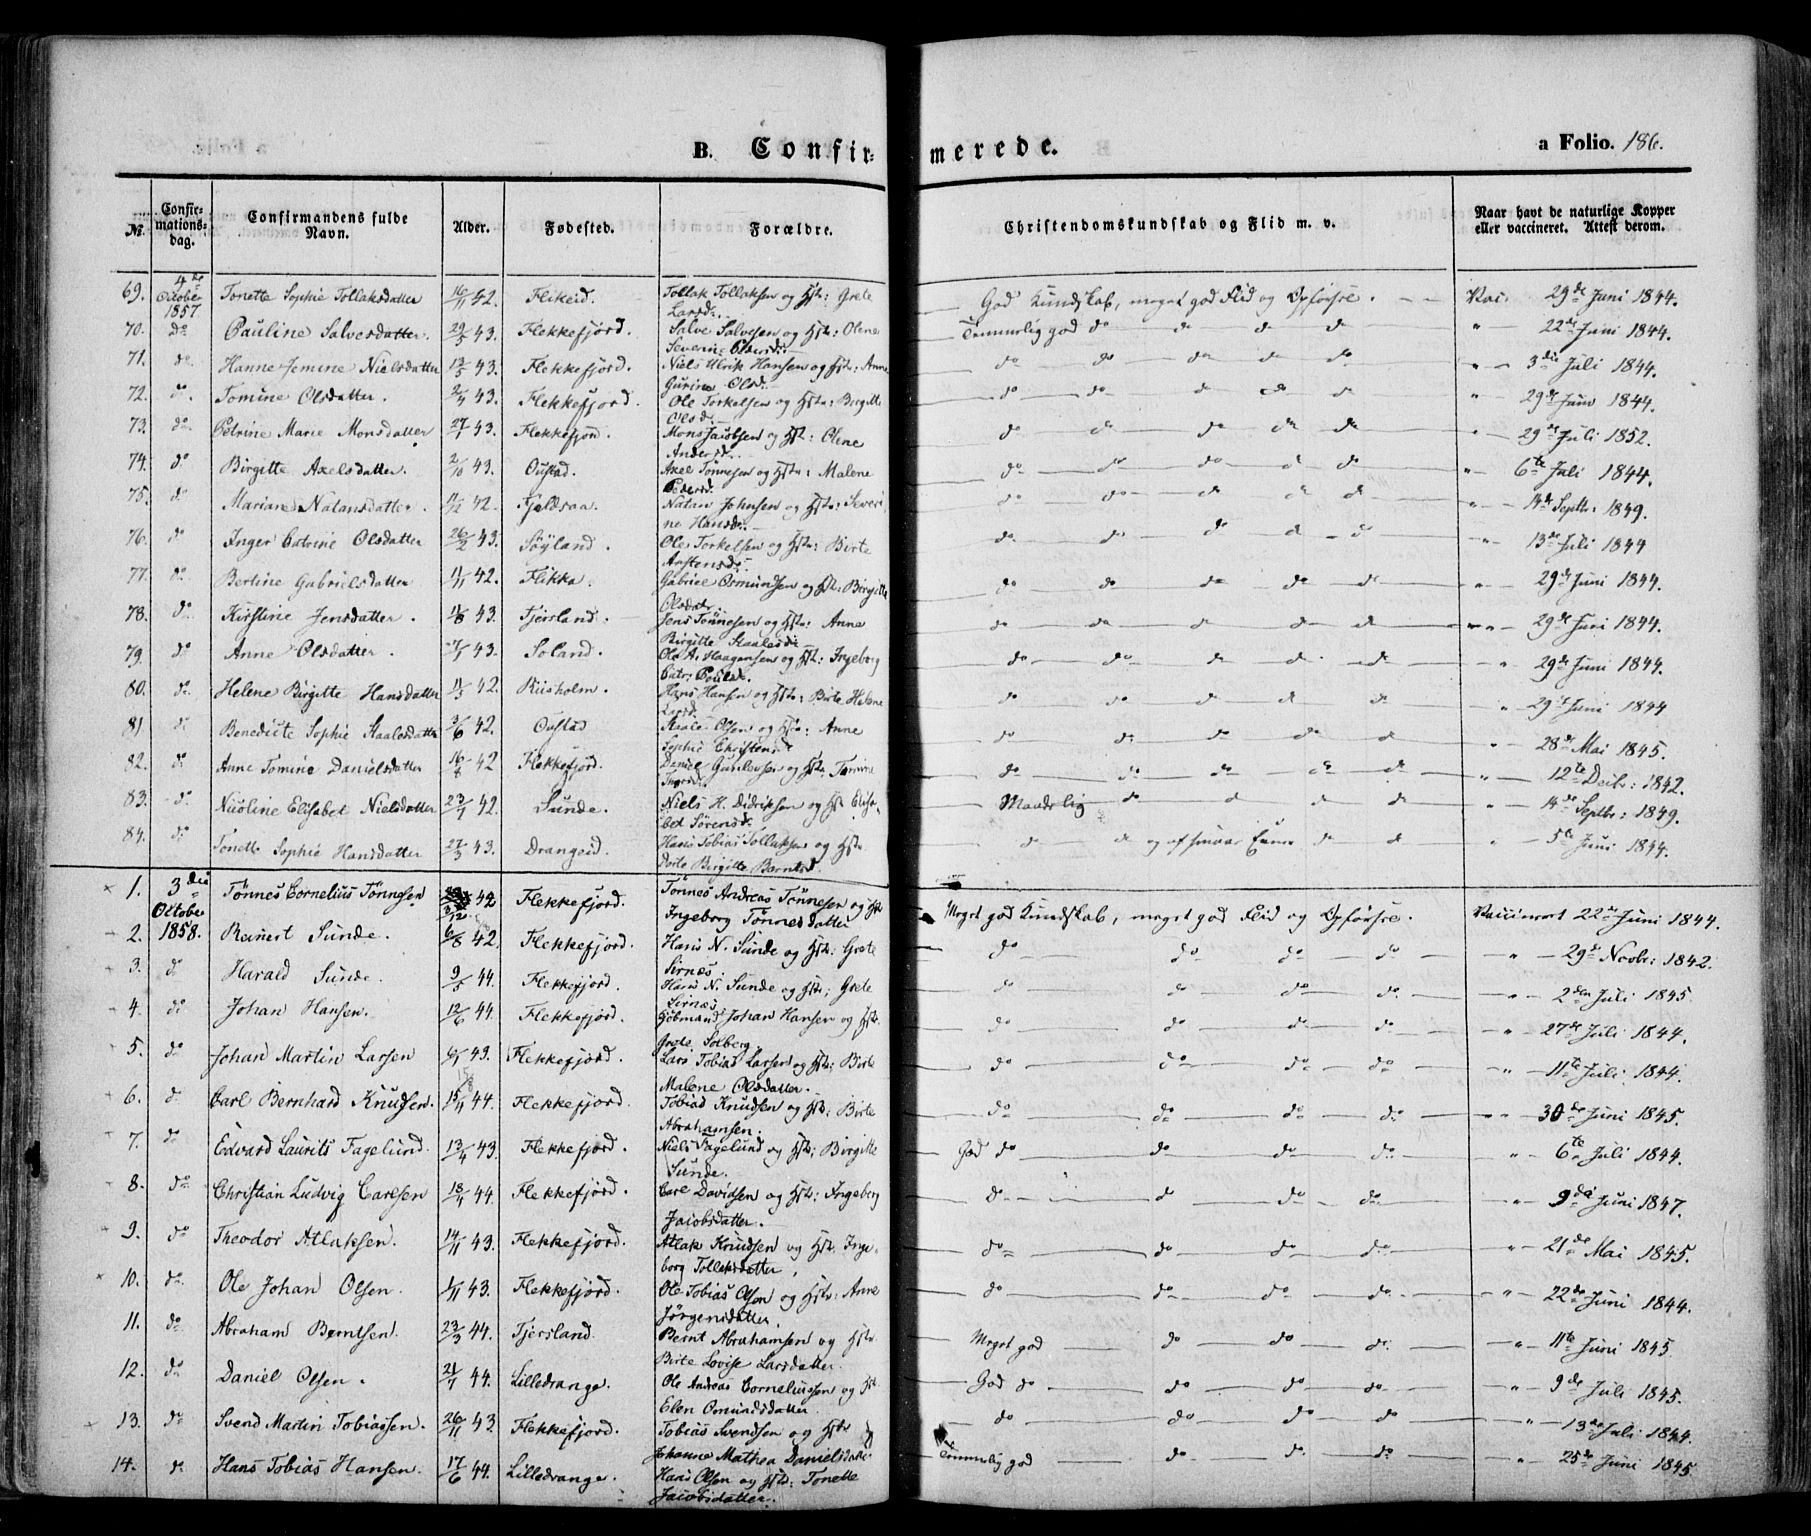 B. Confir-merede. a Folio. 186.
No. Confirmationsdag. Confirmandens fulde Navn. Alder. Fødested. Forældre. Christendomskundskab og Flid m. v. Naar havt de naturlige Kopper eller vaccineret. Attest derom.
69. 4de October 1857. Tonette Sophie Tollaksdatter 16/11 42. Flikeid. Tollak Tollaksen og Hst: Grete Larsd. God Kundskab, meget god Flid og Opførsel. Vac: 29de Juni 1844.
70. do Pauline Salvesdatter 29/5 43. Flekkefjord. Salve Salvesen og Hst: Olene Severine Pedersd: Temmelig god do do do do " 22de Juni 1844.
71. do Hanne Jemine Nielsdatter 13/5 43. Flekkefjord. Niels Ulrik Hansen og Hst: Anne Gurine Olsd. do do do do do " 3die Juli 1844.
72. do. Tomine Olsdatter. 2/4 43. Flekkefjord. Ole Torkelsen og Hst: Birgitte Olsd. do do do do do " 29de Juni 1844.
73. do Petrine Marie Monsdatter 27/1 43. Flekkefjord. Mons Jacobsen og Hst: Olene Andersd. do do do do 29de Juli 1852.
74. do Birgitte Axelsdatter. 2/10 43. Oustad. Axel Tønnesen og Hst: Malene Pedersd. do do do do do " 6te Juli 1844.
75. do Mariane Natansdatter. 11/12 42. Fjeldsaa. Natan Johnsen og Hst: Severine Hansd. do do do do do " 14de Septbr: 1849.
76. do Inger Catrine Olsdatter 26/2 43. Søyland. Ole Torkelsen og Hst: Birte Arstensd: do do do do do " 13de Juli 1844
77. do Bertine Gabrielsdatter 11/11 42. Flikka. Gabriel Osmundsen og Hst: Birgitte Olsdtr do do do do do " 29de Juni 1844.
78. do Kirstine Jensdatter. 11/8 43. Fjersland. Jens Tønnesen og Hst: Anna Birgitte Staalesd: do do do do do " 29de Juni 1844.
79. do Anne Olsdatter. 43. Soland. Ole A. Haagensen og Hst: Ingeborg Catr: Poulsd. do do do do do " 29de Juni 1844.
80. do. Helene Birgitte Hansdatter 11/5 42. Riisholm. Hans Hansen og Hst: Birte Helene Larsd. do do do do do " 29de Juni 1844
81 do Benedicte Sophie Staalesdatter 3/6 42. Oustad Staale Olsen og Hst: Anne Sophie Christensd. do do do do do " 28de Mai 1845.
82. do Anne Tomine Danielsdatter 16/8 42 Flekkefjord. Daniel Gunlevsen og Hst: Tomine do do do do do " 12te Decbr: 1842.
83. do Nicoline Elisabet Nielsdatter 23/7 42. Sunde. Niels H. Didriksen og Hst Elisabet Sørensd. Maadelig do do do do " 14de Septbr: 1849.
84. do Tonette Sophie Hansdatter 27/3 43. Drangeid. Hans Tobias Tollaksen og Hst: Dorte Birgitte Berntsd. do do do do " 5te Juni 1844.
1. 3die October 1858. Tønnes Cornelius Tønnesen 42 Flekkefjord. Tønnes Andreas Tønnesen og Hst Ingeborg Tønnesdatter Meget god Kundskab, meget god Flid og Opførsel. Vaccineret 22de Juni 1844.
2. Reinert Sunde. 6/8 42. Flekkefjord. Hans N. Sunde og Hst: Grete Sirnæs. do do do do " 29de Novbr: 1842.
3. do Harald Sunde. 9/5 44. Flekkefjord. Hans N. Sunde og Hst: Grete Sirnæs. do do do do. " 2den Juli 1845.
4. do Johan Hansen. 12/6 44. Flekkefjord. Kjøbmand Johan Hansen og Hst. Grete Solberg. do do do do " 27de Juli 1844.
5. do Johan Martin Larsen 6/1 43. Flekkefjord. Lars Tobias Larsen og Hst: Birte Malene Olsdatter. do do do do " 11te Juli 1844.
6. do Carl Bernhard Knudsen. 15/4 44. Flekkefjord. Tobias Knudsen og Hst: Birte Abrahamsen. do do do do " 30de Juni 1845.
7. do Edvard Laurits Fagelund. 13/4 43. Flekkefjord. Niels Fagelund og Hst: Birgitte Sunde. God do do do do " 6te Juli 1844.
8. do Christian Ludvig Carlsen 18/4 44. Flekkefjord. Carl Davidsen og Hst: Ingeborg Jacobsdatter. do do do do " 9de Juni 1847.
9. do Theodor Atlaksen. 14/11 43. Flekkefjord. Atlak Knudsen og Hst. Ingeborg Tollaksdatter. do do do do " 21de Mai 1845.
10. do Ole Johan Olsen. 1/11 43. Flekkefjord. Ole Tobias Olsen og Hst: Anne Jørgensdatter. do do do do " 22de Juni 1844.
11. do Abraham Berntsen. 23/3 44. Fjersland. Bernt Abrahamsen og Hst: Birte Lovise Larsdatter. Meget god do do do " 11te Juni 1845.
12. do Daniel Olsen. 21/7 44. Lilledrange. Ole Andreas Corneliussen og Hst Elen Omundsdatter. God do do do do " 9de Juli 1845.
13. do Svend Martin Tobiassen. 26/11 43. Flekkefjord. Tobias Svendsen og Hst: Johanne Mathea Danielsdatter do do do do " 13de Juli 1844.
14. do Hans Tobias Hansen. 17/6 44. Lilledrange. Hans Olsen og Hst: Tonette Jacobsdatter. Temmelig god do do do " 25de Juni 1845